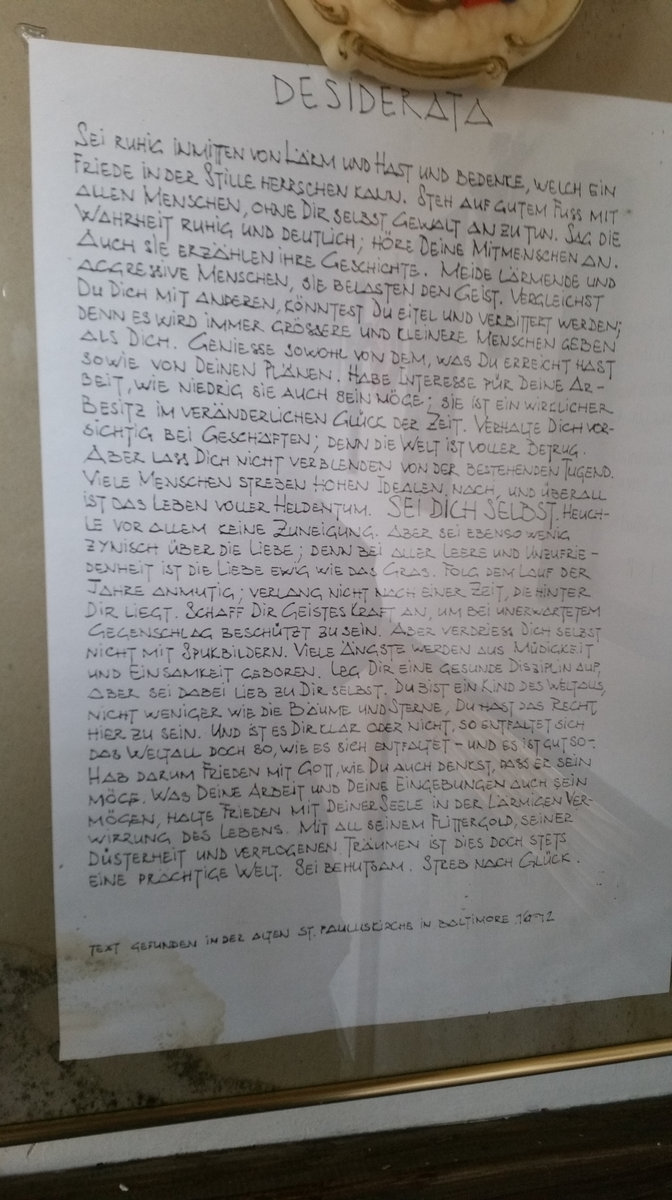 DESIDERATA
SEI RUHIG INMITTEN VON LÄRM UND HAST UND BEDENKE, WELCH EIN
FRIEDE IN DER STILLE HERRSCHEN KANN. STEH AUF GUTEM FUSS MIT
ALLEN MENSCHEN, OHNE DIR SELBST GEWALT AN ZU TUN. SAG DIE
WAHRHEIT RUHIG UND DEUTLICH; HÖRE DEINE MITMENSCHEN AN.
AUCH SIE ERZÄHLEN IHRE GESCHICHTE. MEIDE LÄRMENDE UND
AGGRESSIVE MENSCHEN, SIE BELASTEN DEN GEIST. VERGLEICHST
DU DICH MIT ANDEREN, KÖNNTEST DU EITEL UND VERBITTERT WERDEN;
DENN ES WIRD IMMER GRÖSSERE UND KLEINERE MENSCHEN GEBEN
ALS DICH. GENIESSE SOWOHL VON DEM, WAS DU ERREICHT HAST
SOWIE VON DEINEN PLÄNEN. HABE INTERESSE FÜR DEINE AR-
BEIT, WIE NIEDRIG SIE AUCH SEIN MÖGE; SIE IST EIN WIRKLICHER
BESITZ IM VERÄNDERLICHEN GLÜCK DER ZEIT. VERHALTE DICH VOR-
SICHTIG BEI GESCHÄFTEN; DENN DIE WELT IST VOLLER BETRUG.
ABER LASS DICH NICHT VERBLENDEN VON DER BESTEHENDEN TUGEND.
VIELE MENSCHEN STREBEN HOHEN IDEALEN NACH, UND ÜBERALL
IST DAS LEBEN VOLLER HELDENTUM. SEI DICH SELBST. HEUCH-
LE VOR ALLEM KEINE ZUNEIGUNG. ABER SEI EBENSO WENIG
ZYNISCH ÜBER DIE LIEBE; DENN BEI ALLER LEERE UND UNZUFRIE-
DENHEIT IST DIE LIEBE EWIG WIE DAS GRAS. FOLG DEM LAUF DER
JAHRE ANMUTIG; VERLANG NICHT NACH EINER ZEIT, DIE HINTER
DIR LIEGT. SCHAFF DIR GEISTESKRAFT AN, UM BEI UNERWARTETEM
GEGENSCHLAG BESCHÜTZT ZU SEIN. ABER VERDRIESS DICH SELBST
NICHT MIT SPUKBILDERN. VIELE ÄNGSTE WERDEN AUS MÜDIGKEIT
UND EINSAMKEIT GEBOREN. LEG DIR EINE GESUNDE DISZIPLIN AUF,
ABER SEI DABEI LIEB ZU DIR SELBST. DU BIST EIN KIND DES WELTALLS,
NICHT WENIGER WIE DIE BÄUME UND STERNE, DU HAST DAS RECHT
HIER ZU SEIN. UND IST ES DIR KLAR ODER NICHT, SO ENTFALTET SICH
DAS WELTALL DOCH SO, WIE ES SICH ENTFALTET - UND ES IST GUT SO -.
HAB DARUM FRIEDEN MIT GOTT, WIE DU AUCH DENKST, DASS ER SEIN
MÖGE. WAS DEINE ARBEIT UND DEINE EINGEBUNGEN AUCH SEIN
MÖGEN, HALTE FRIEDEN MIT DEINER SEELE IN DER LÄRMIGEN VER-
WIRRUNG DES LEBENS. MIT ALL SEINEM FLITTERGOLD, SEINER
DÜSTERHEIT UND VERFLOGENEN TRÄUMEN IST DIES DOCH STETS
EINE PRÄCHTIGE WELT. SEI BEHUTSAM. STREB NACH GLÜCK.
TEXT GEFUNDEN IN DER ALTEN ST. PAULUSKIRCHE IN BALTIMORE